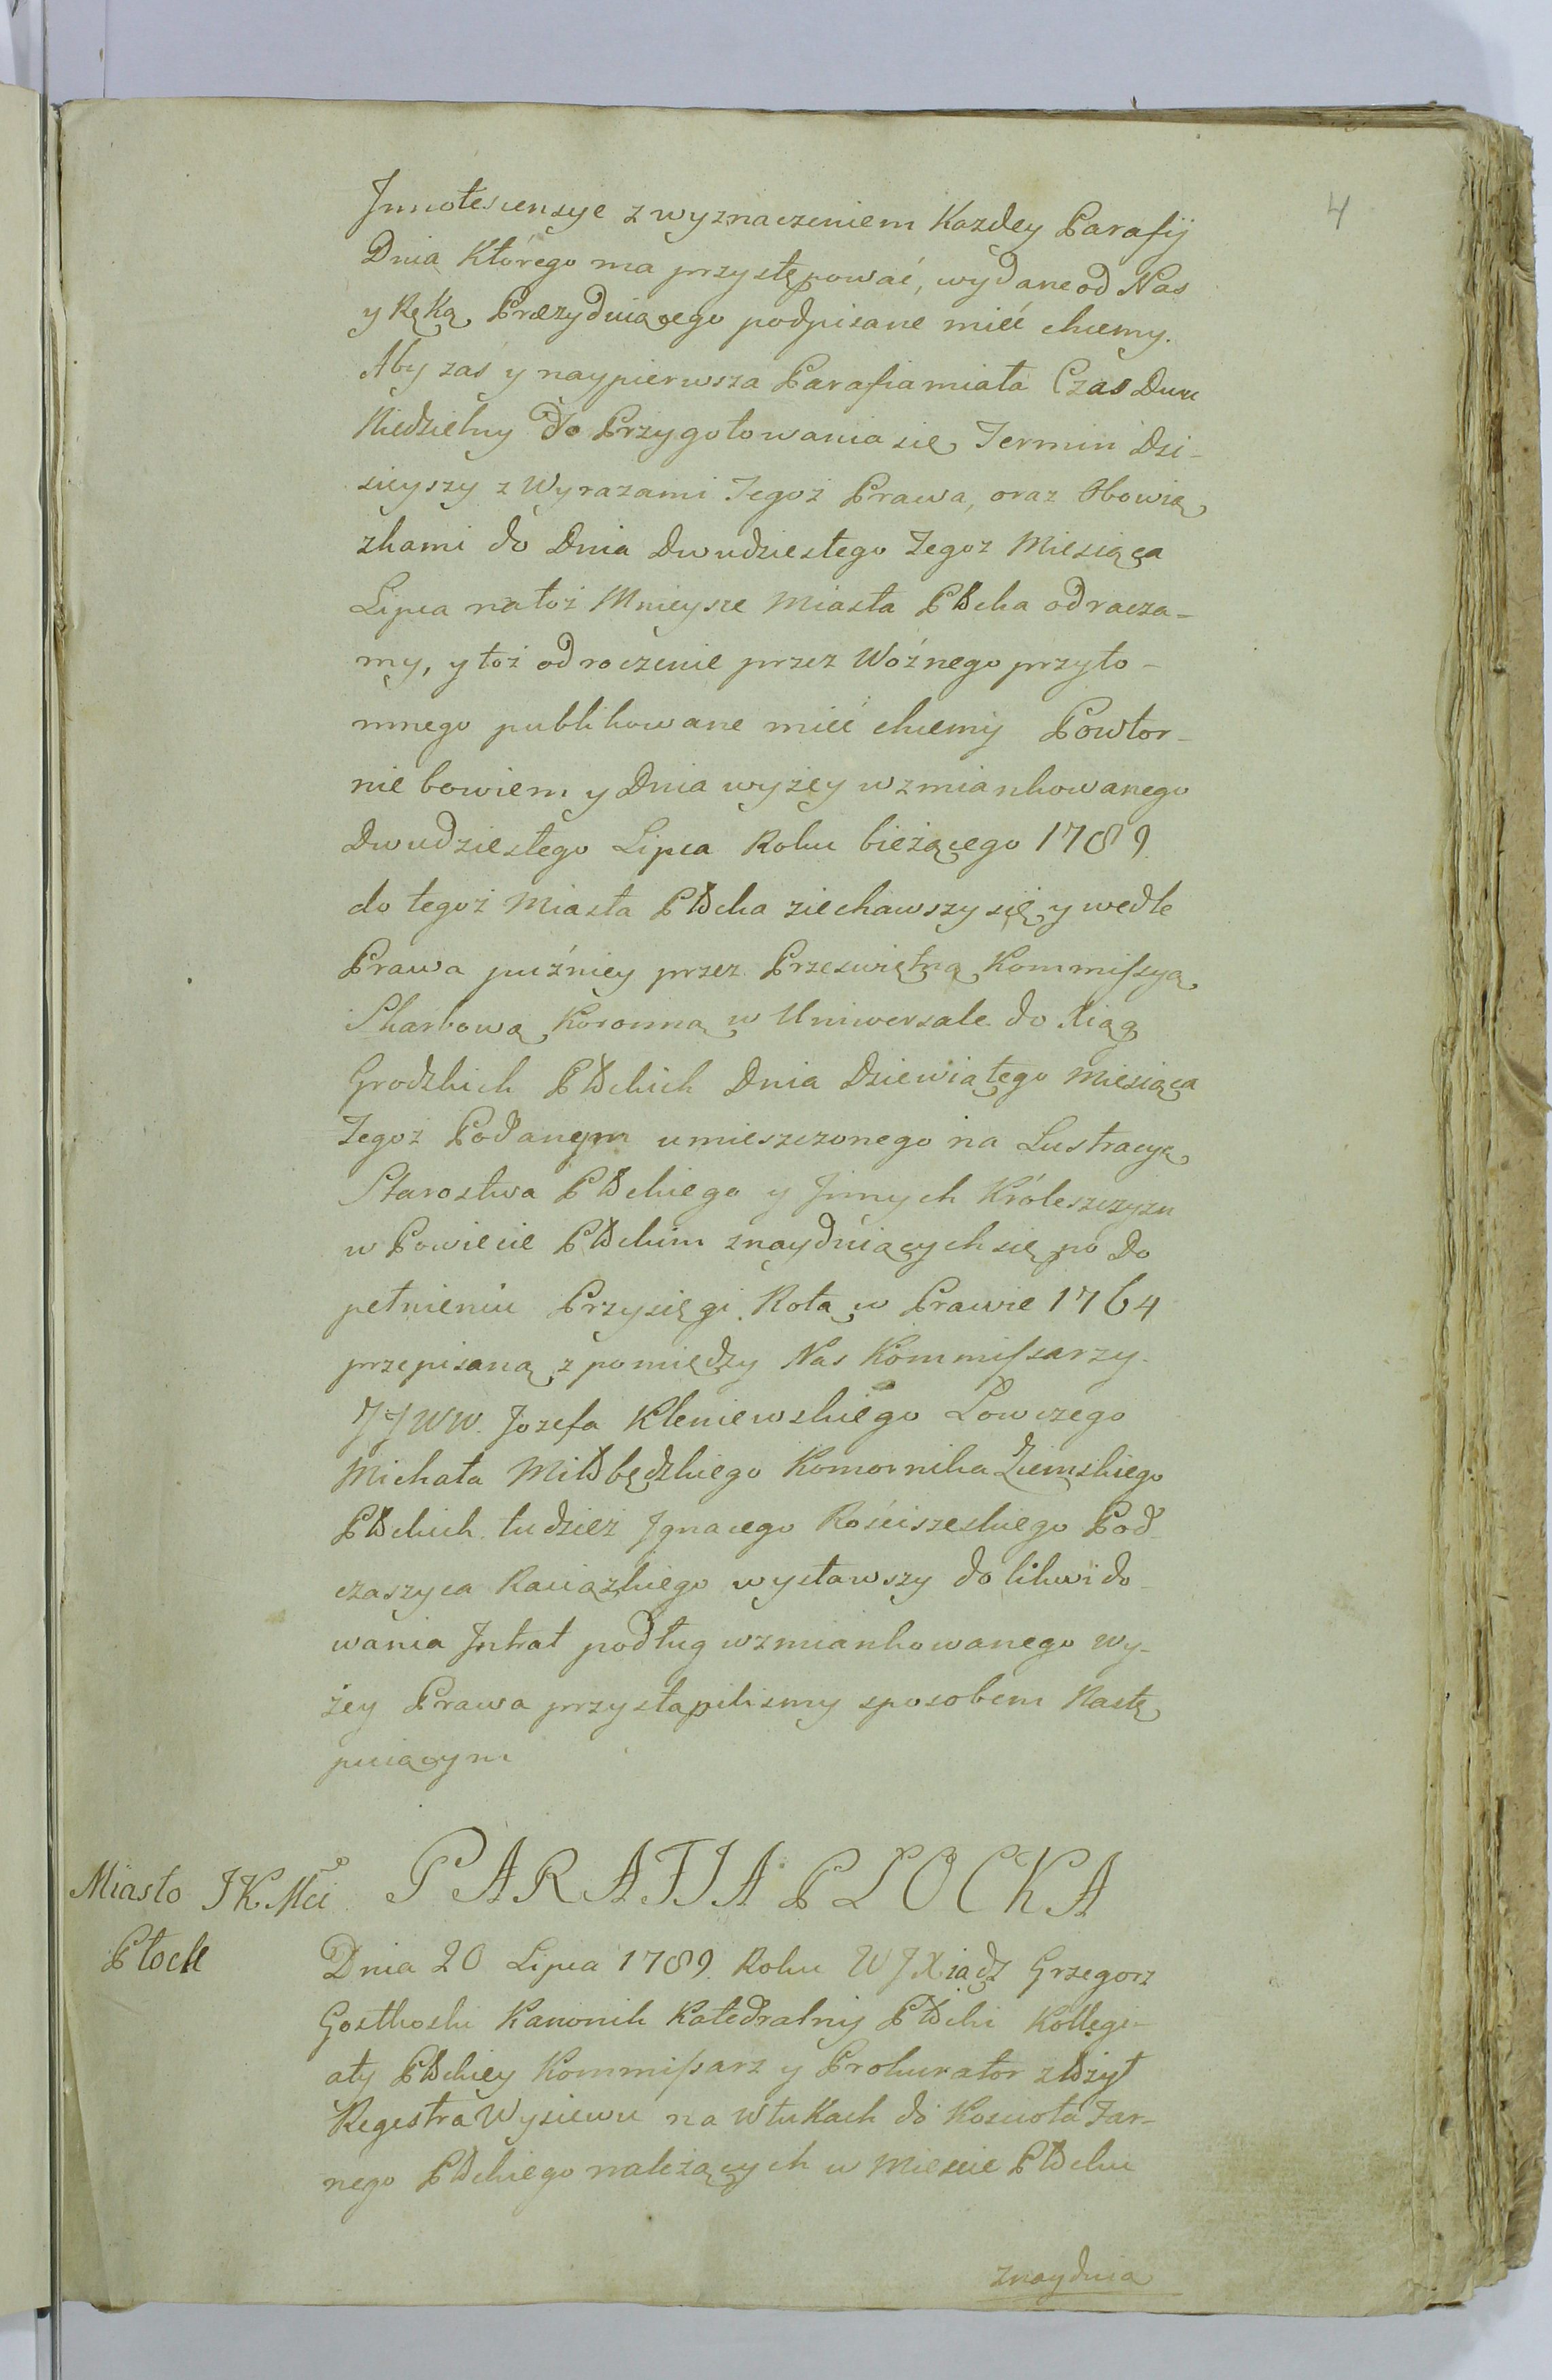 4
Innotescensye z wyznaczeniem Kazdey Parafij
Dnia Którego ma przystępować, wydane od Nas
y Ręką Prezyduiącego podpisane mieć chcemy.
Aby zaś y naypierwsza Parafia miała Czas Dwu
Niedzielny do Przygotowania się, Termin Dzi-
sieyszy z Wyrazami Tegoż Prawa, oraz Obowią
zkami do Dnia Dwudziestego Tegoz Miesiąca
Lipca na toż Mieysce Miasta Płocka odracza-
my, y toż odroczenie przez Woźnego przyto-
mnego publikowane mieć chcemy Powtor-
nie bowiem y Dnia wyżey wzmiankowanego
Dwudziestego Lipca Roku bieżącego 1789.
do tegoż Miasta Płocka ziechawszy się y wedle
Prawa puźniey przez Przeświętną Kommissyą
Skarbową Koronną w Uniwersale do Xiąg
Grodzkich Płockich Dnia Dziewiątego Miesiąca
Tegoż Podanym umieszczonego na Lustracyę
Starostwa Płockiego y Innych Króleszczyzn
w Powiecie Płockim znayduiących się po Do
pełnieniu Przysięgi Rotą w Prawie 1764
przepisaną z pomiędzy Nas Kommissarzy
JJWW. Jozefa Kleniewskiego Łowczego
Michała Miłobędzkiego Komornika Ziemskiego
Płockich tudzież Ignacego Rościszeskiego Pod-
czaszyca Raciązkiego wysławszy do likwido-
wania Intrat podług wzmiankowanego wy-
żey Prawa przystąpilismy sposobem Nastę
puiącym
PARAFIA PŁOCKA
Miasto JKMci
Płock
Dnia 20 Lipca 1789. Roku WJXiądz Grzegorz
Gostkoski Kanonik Katedralny Płocki Kollegi-
aty Płockiey Kommissarz y Prokurator złożył
Regestra Wysiewu na Włukach do Kościoła Far-
nego Płockiego należących w Mieście Płocku
znayduią